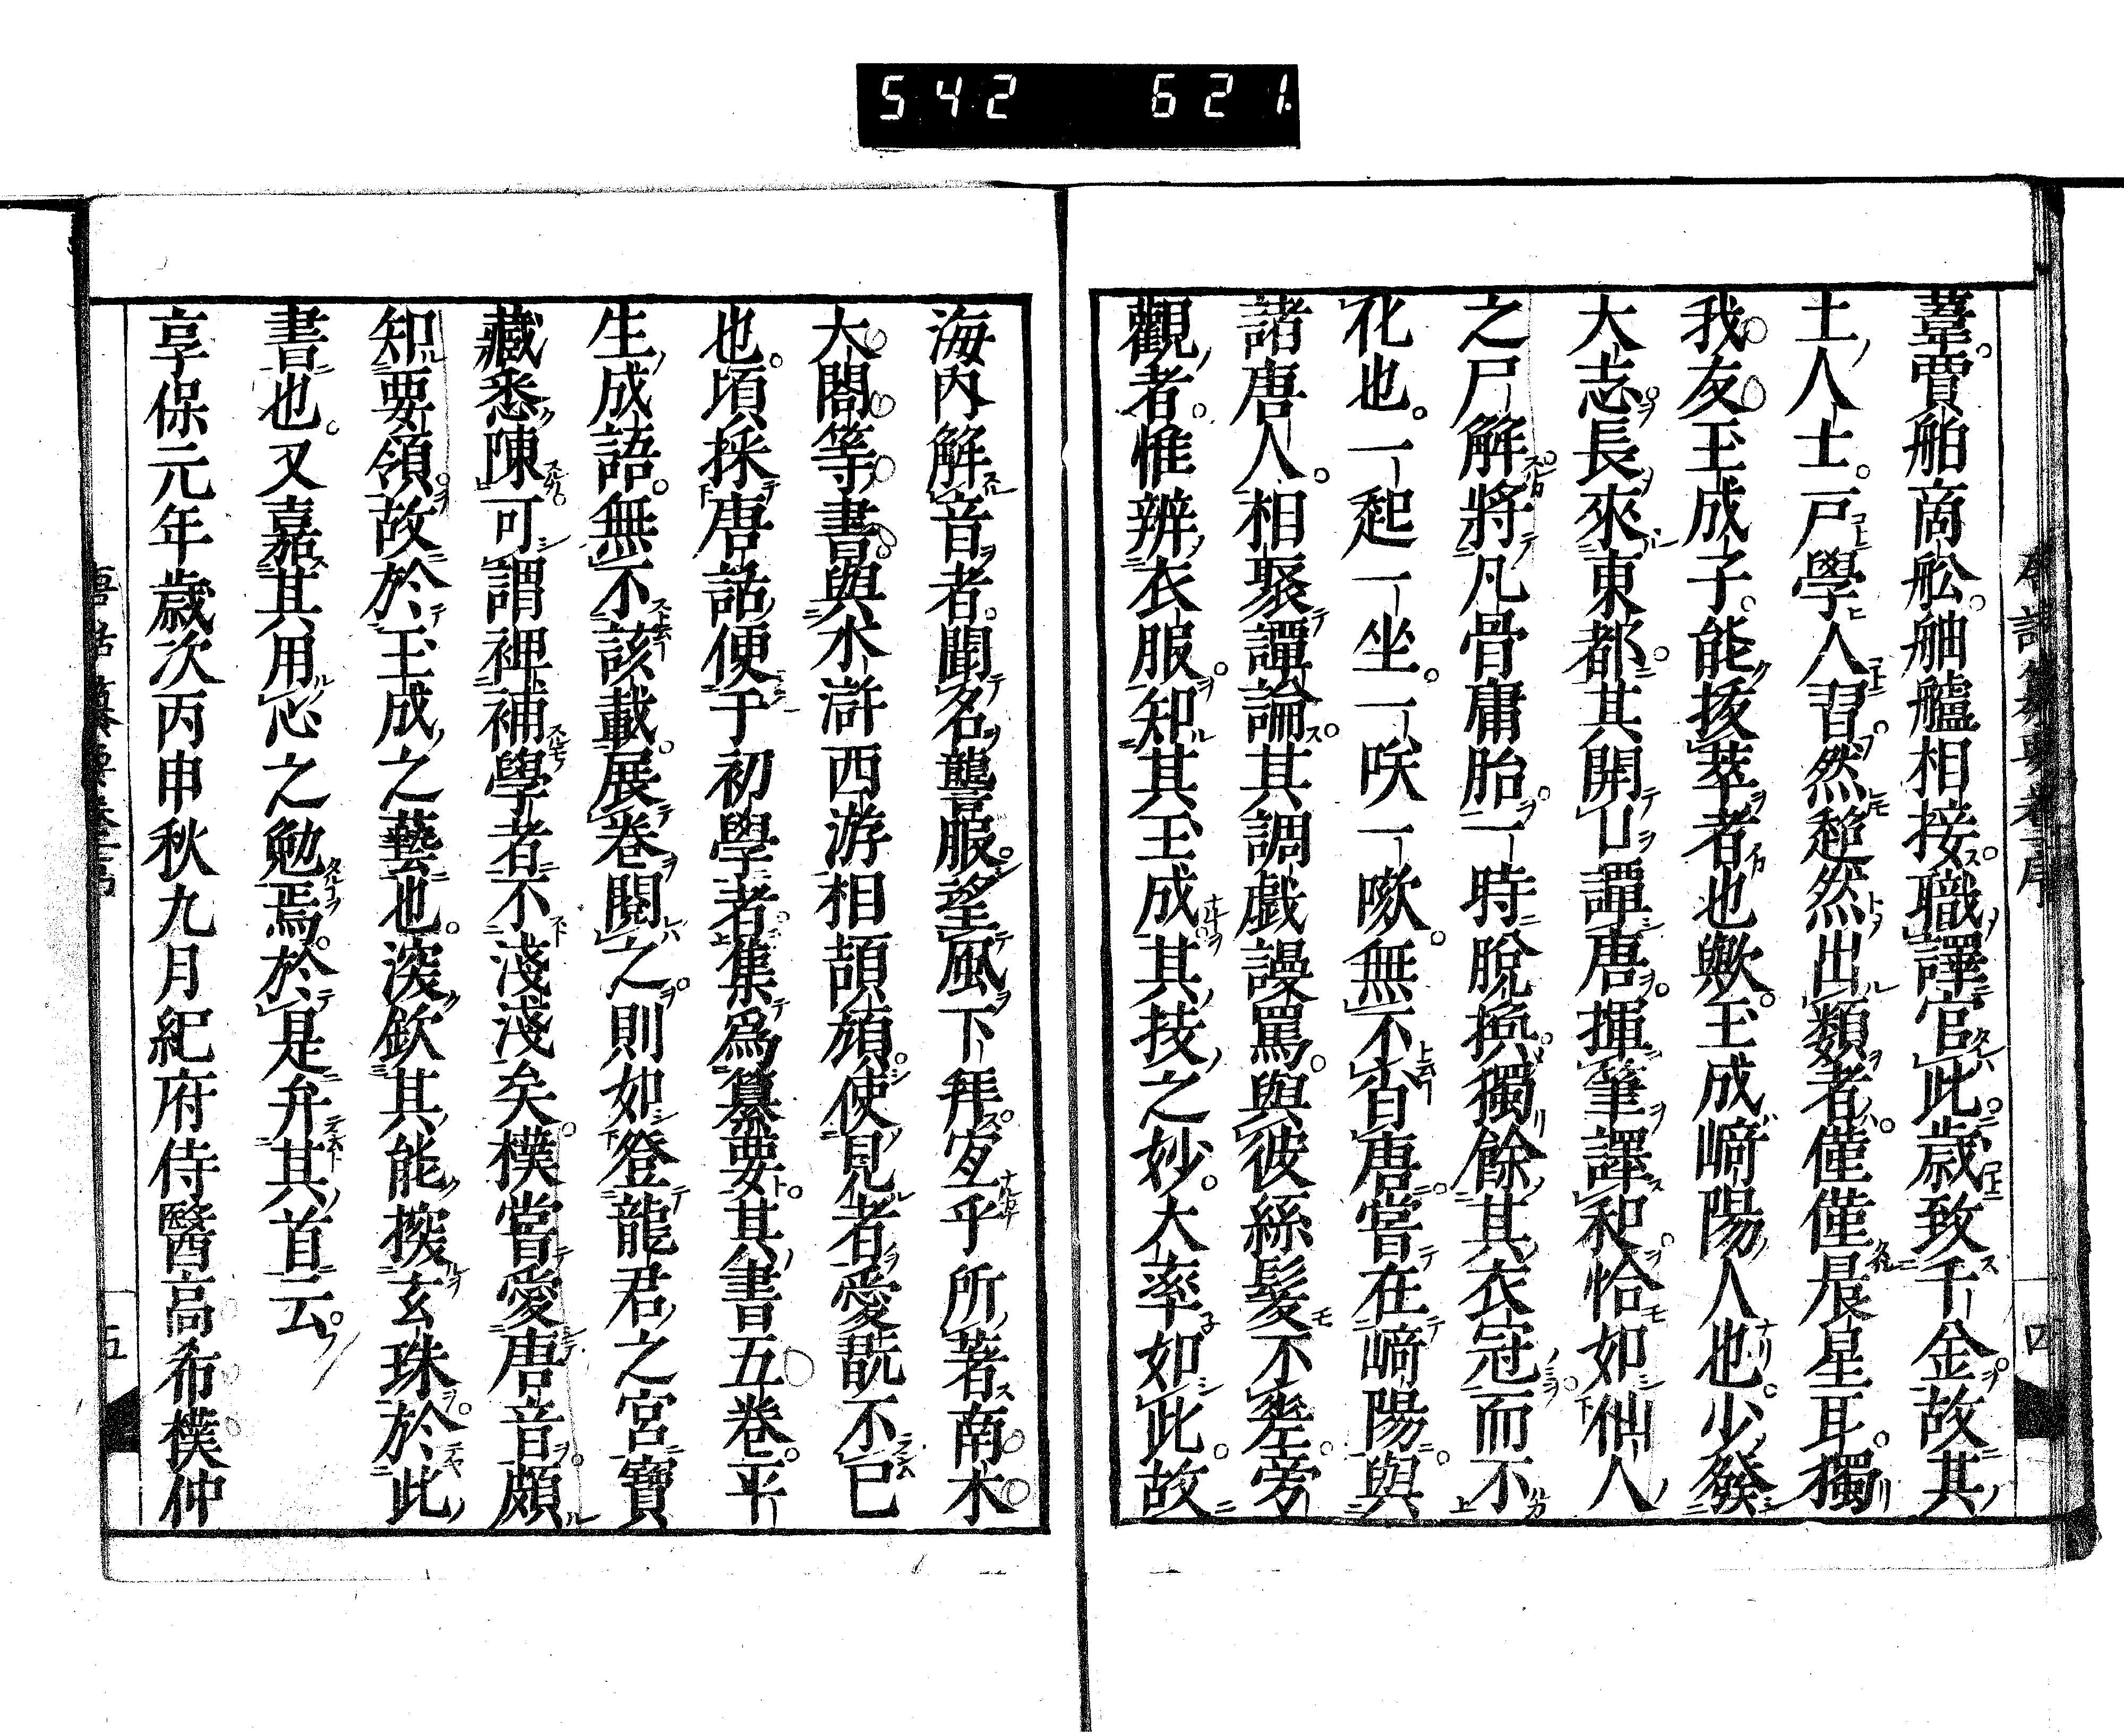 542 621.
羣賈舶商舩舳艫相接職譯官此歲致千金故其
土人士尸學人習然超然出類者僅僅晨星耳獨
我友玉成子能拔萃者也歟玉成﨑陽人也少發
大志長來東都其開口譚唐揮筆譯和恰如仙人
之尸解將凡骨庸胎一時脫換獨餘其衣冠而不
化也一起一坐一咲一嗽無不省唐嘗在﨑陽與
諸唐人相聚譚論其調戲謾罵與彼絲髮不差旁
觀者惟辨衣服知其玉成其技之妙大率如此故
海內解音者聞名讋服望風下拜宜乎所著南木
大閤等書與水滸西游相頡頏使見者愛翫不已
也頃採唐話便于初學者集爲纂要其書五卷平
生成語無不該載展卷閱之則如登龍君之宮寶
藏悉陳可謂裨補學者不淺淺矣樸嘗愛唐音頗
知要領故於玉成之藝也深欽其能探玄珠於此
書也又嘉其用心之勉焉於是弁其首云
享保元年歲次丙申秋九月紀府侍醫高希樸仲
唐話纂要卷 五